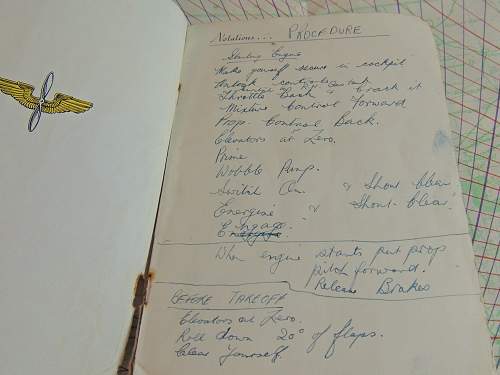 Notations... PROCEDURE
Starting Engine
Make yourself secure in cockpit
Unlock controls
Throttle Back & Crack it
Mixture Control Forward
Prop. Control Back.
Elevators at Zero.
Prime
Wobble Pump.
Switch On. & Shout Clear
Energise & Shout Clear
Engage.
When engine starts put prop
pitch forward.
Release Brakes
BEFORE TAKEOFF
Elevators at Zero.
Roll down 20° of flaps.
Clear Yourself.